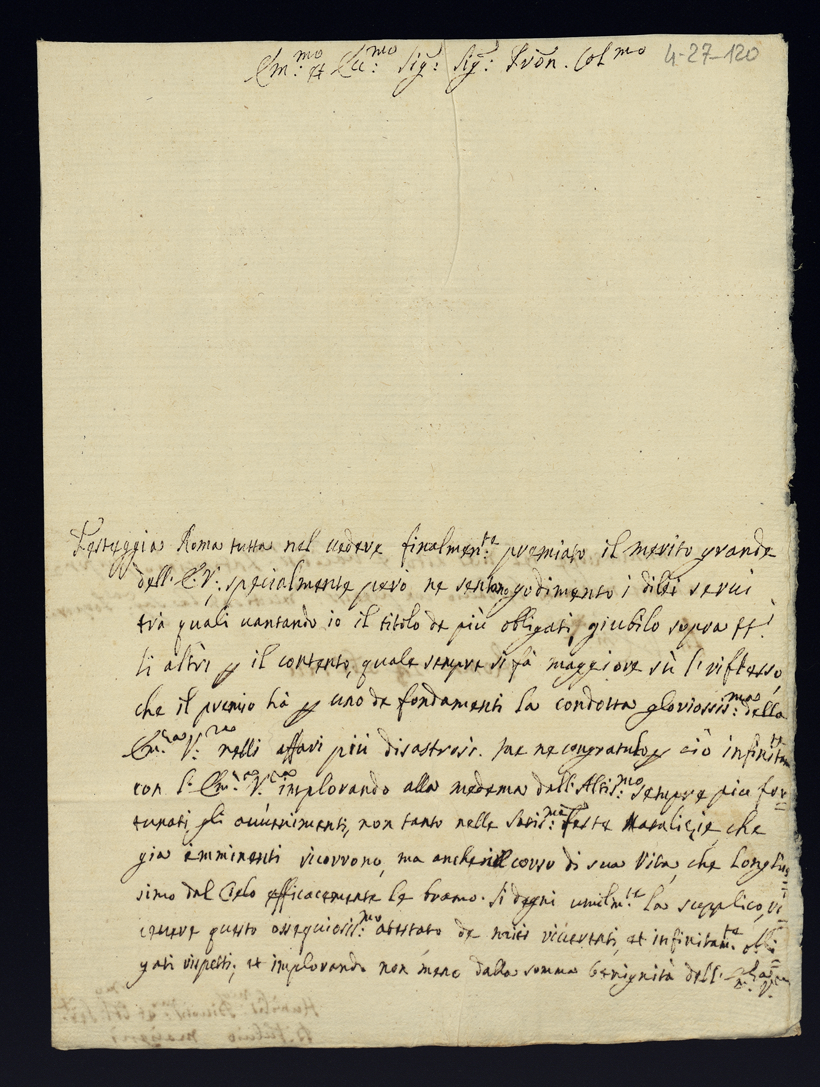 Em:mo et Ecc:mo Sig: Sig: Pron. Col:mo
4-27-120
Festeggia Roma tutta nel vedere finalmen:te premiato il merito grande
dell' E.V: specialmente però ne senton godimento i di lei servi
trà quali vantando io il titolo de più obligati, giubilo sopra tt'
li altri p il contento, quale sempre si fà maggiore sù l' riflesso,
che il premio hà p uno de fondamenti la condotta gloriosis:ma della
Em:za V:ra nelli affari più disastrosi. me ne congratulo p ciò infinitam:te
con l' Em:za V:ra implorando alla medema dall' Altis:mo sempre piu for=
tunati gli avvenimenti, non tanto nelle Santis:me Feste Natalizie, che
gia imminenti ricorrono, ma anche nel corso di sua Vita, che longhis=
simo dal Cielo efficacemente le bramo. Si degni umilm:te la supplico, ri=
cevere questo ossequiosis:mo attestato de miei riverenti, et infinitam:te obli=
gati rispetti; et implorando non meno dalla somma benignità dell' V: